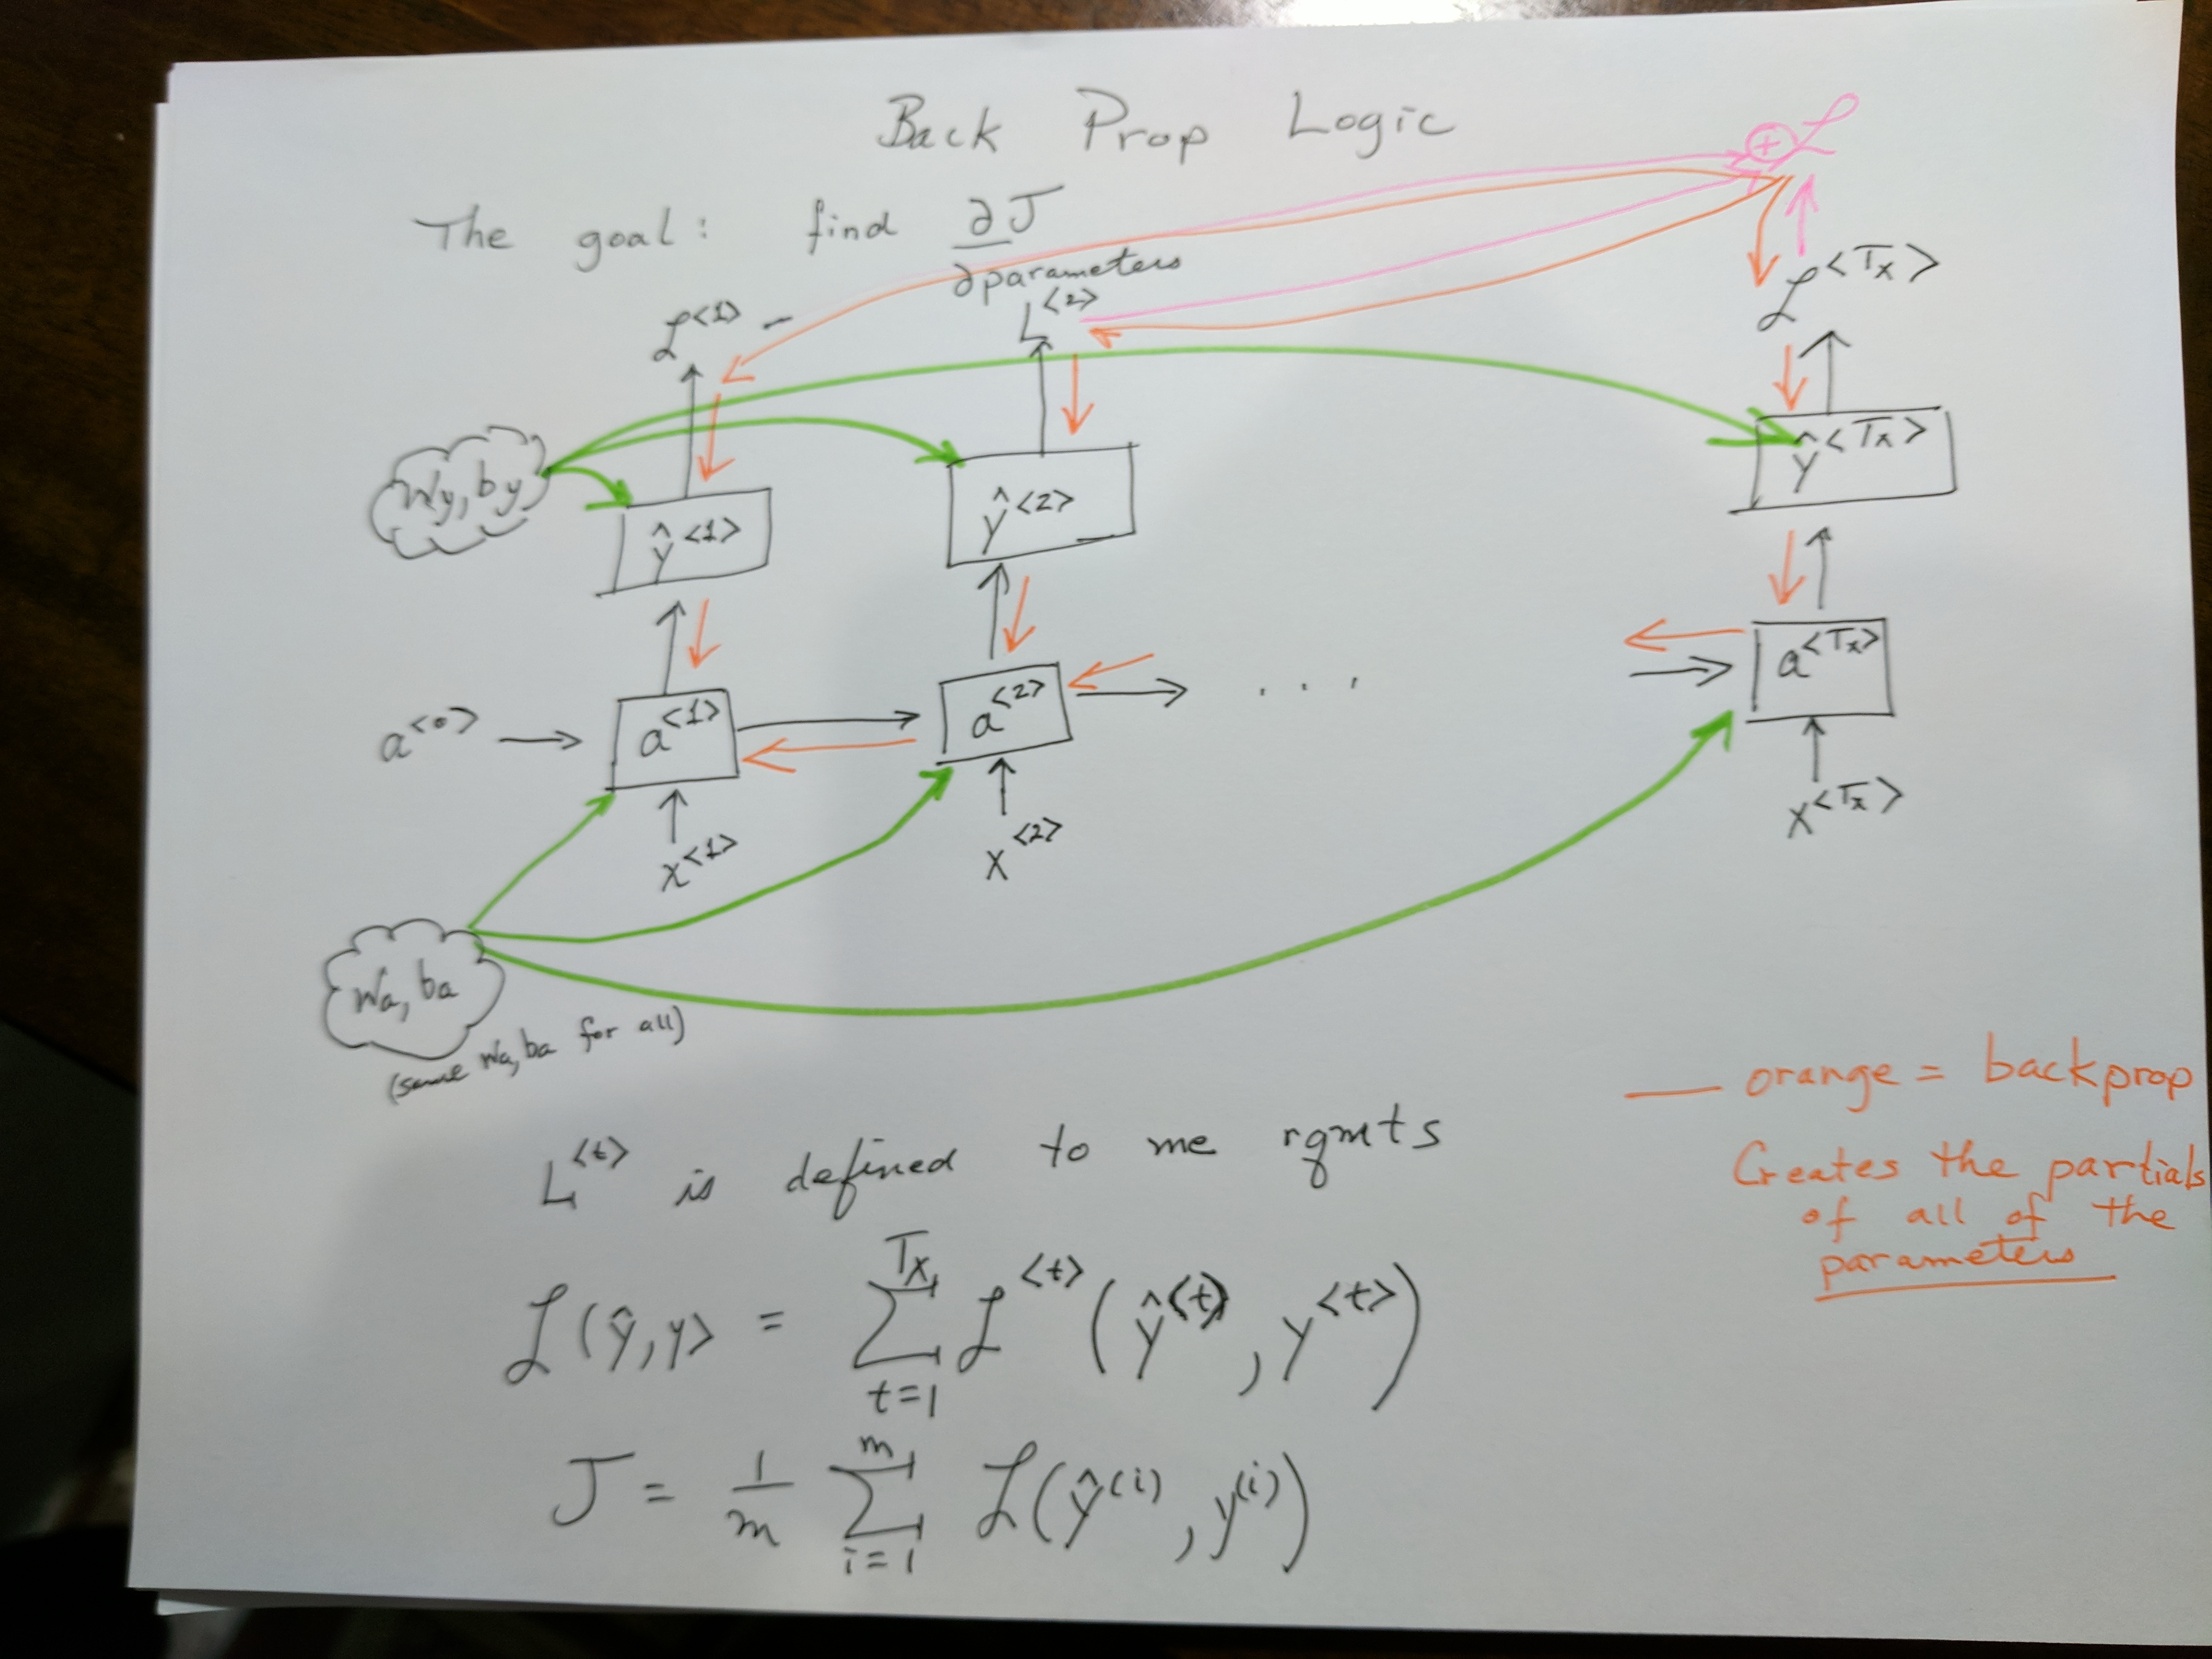 Back Prop Logic
⊕ ℒ
The goal: find ∂J
∂parameters
ℒ<1>
L<2>
ℒ<Tx>
Wy, by
ŷ<1>
ŷ<2>
ŷ<Tx>
a<0>
a<1>
a<2>
. . .
a<Tx>
x<1>
x<2>
x<Tx>
Wa, ba
(same Wa, ba for all)
orange = backprop
Creates the partials
of all of the
parameters
L<t> is defined to me rqmts
ℒ(ŷ,y> = Tx Σ t=1 ℒ<t>(ŷ<t>, y<t>)
J = 1/m m Σ i=1 ℒ(ŷ(i), y(i))